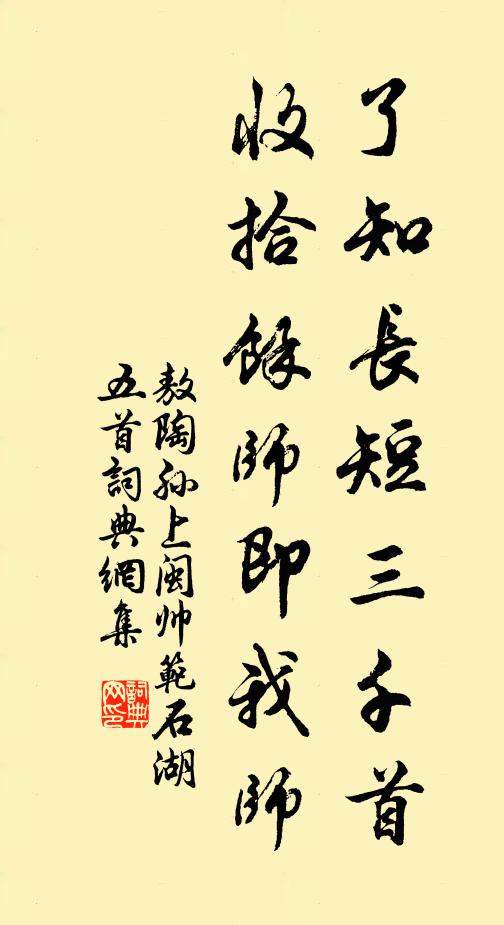 了知長短三千首
收拾餘師即我師
敖陶孙上闽帅範石湖
五首詞典網集
詞典网印